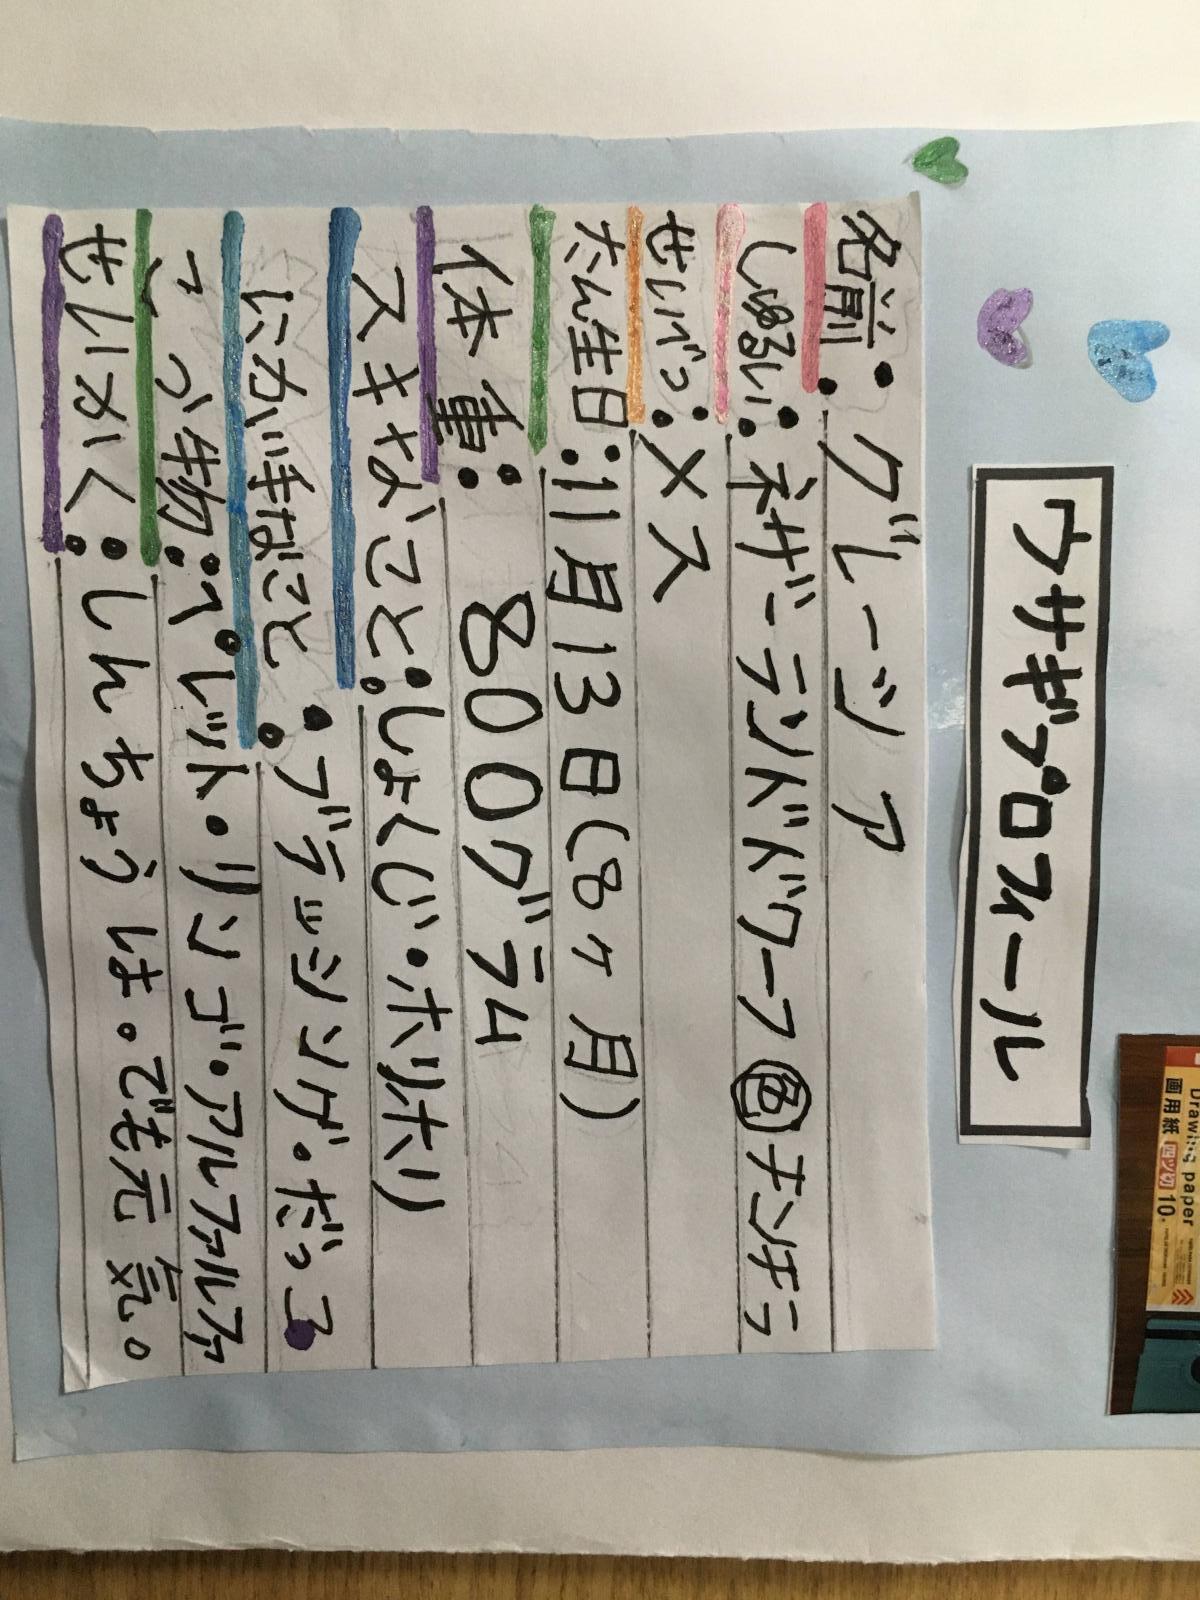 ウサギプロフィール
名前：グレーシア
しゅるい：ネザーランドドワーフ 色 チンチラ
せいべつ：メス
たん生日：11月13日(8ヶ月)
体重：800グラム
スキなこと：しょくじ・ホリホリ
にが手なこと：ブラッシング・だっこ
つ物：ペレット・リンゴ・アルファルファ
せいかく：しんちょうは。でも元気。
Drawing paper
画用紙 四ツ切 10